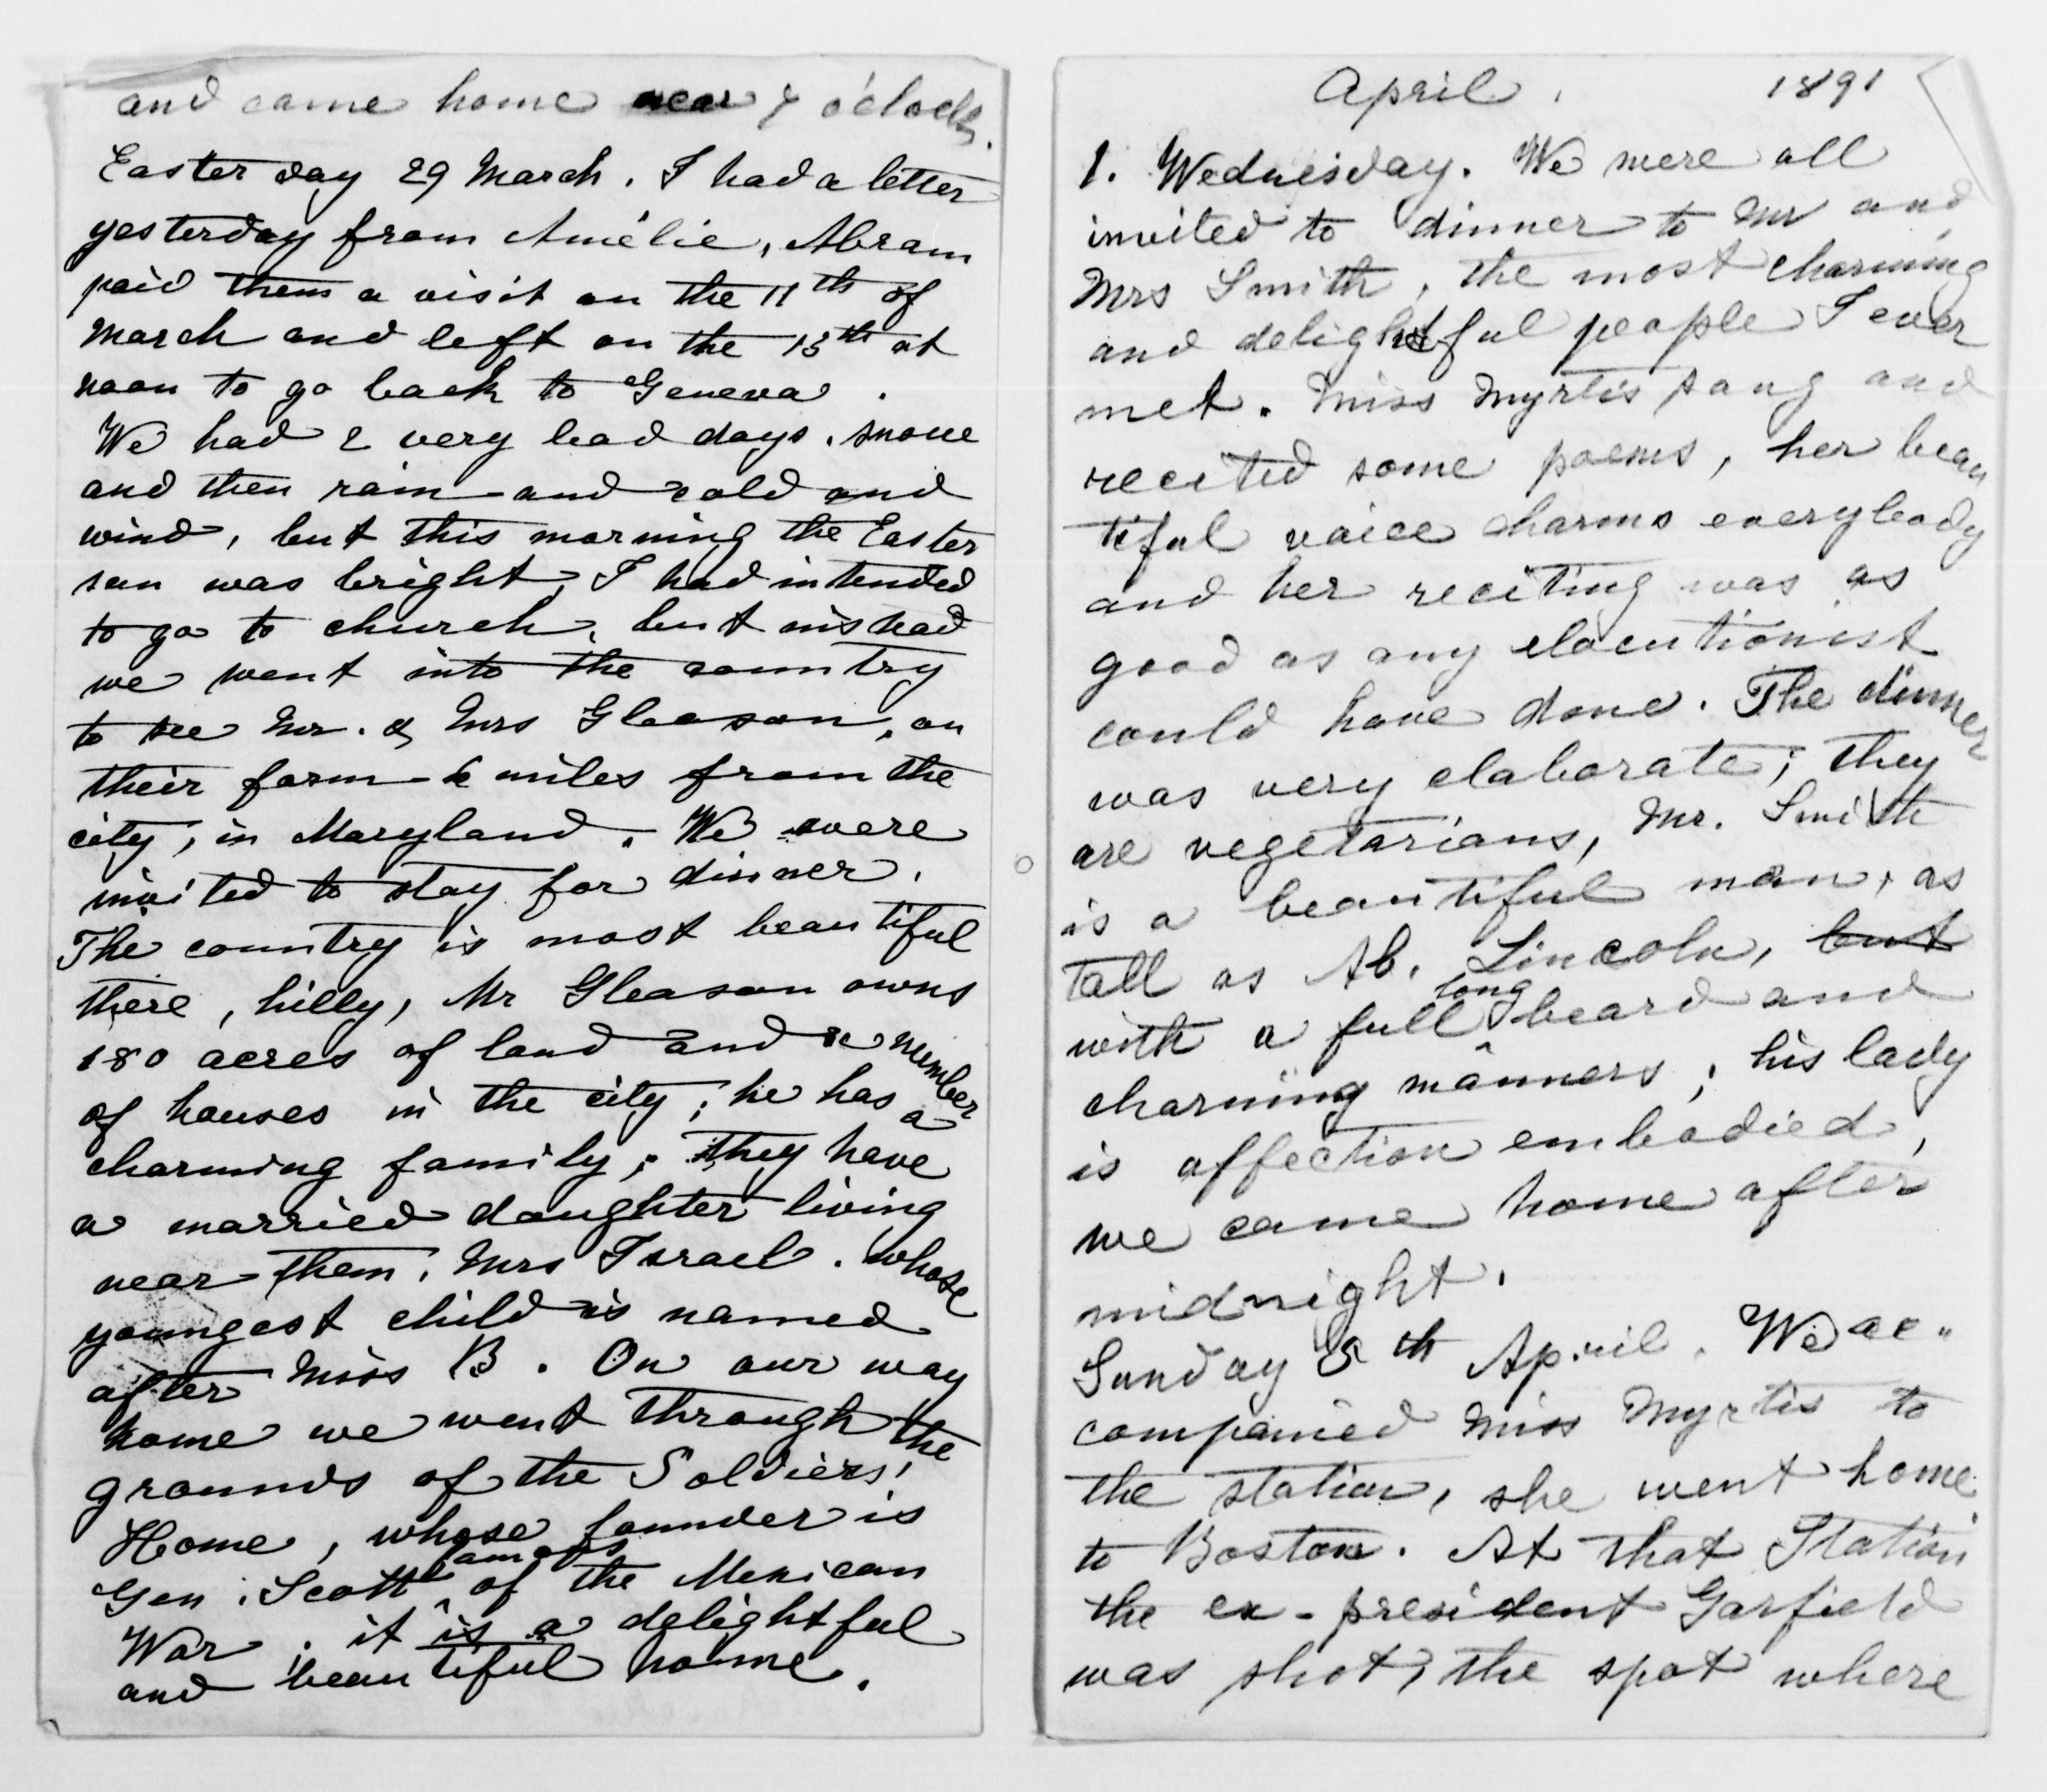 and came home near 7 o'clock.
Easter day 29 March. I had a letter
yesterday from Amélie, Abram
paid them a visit on the 11th of
March and left on the 13th at
noon to go back to Geneva.
We had 2 very bad days. snowe
and then rain and cold and
wind, but this morning the Easter
sun was bright, I had intended
to go to church, but instead
we went into the country
to see Mr. & Mrs Gleason, on
their farm 6 miles from the
city, in Maryland. We were
invited to stay for dinner.
The country is most beautiful
there, hilly, Mr Gleason owns
180 acres of land and a number
of houses in the city; he has a
charming family; they have
a married daughter living
near them, Mrs Israel. whose
youngest child is named
after Miss B. On our way
home we went through the
grounds of the Soldiers'
Home, whose founder is
Gen. Scott famous of the Mexican
War; it is a delightful
and beautiful home.
April. 1891
1. Wednesday. We were all
invited to dinner to Mr and
Mrs Smith, the most charming
and delightful people I ever
met. Miss Myrtis sang and
recited some poems, her beau
tiful voice charms everybody
and her reciting was as
good as any elocutionist
could have done. The dinner
was very elaborate; they
are vegetarians, Mr. Smith
is a beautiful man, as
tall as Ab. Lincoln, but
with a full long beard and
charming manners; his lady
is affection embodied,
we came home after
midnight.
Sunday 5th April. We ac-
companied Miss Myrtis to
the station, she went home
to Boston. At that Station
the ex-president Garfield
was shot, the spot where